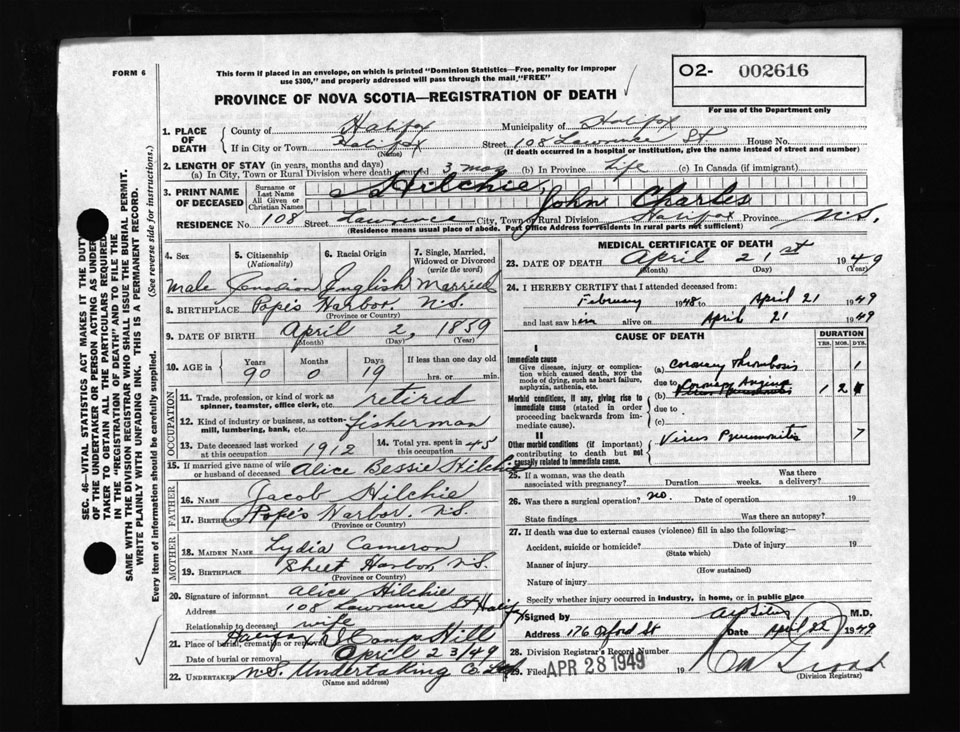 FORM 6
This form if placed in an envelope, on which is printed "Dominion Statistics—Free, penalty for improper
use $300," and properly addressed will pass through the mail "FREE"
PROVINCE OF NOVA SCOTIA—REGISTRATION OF DEATH
O2- 002616
For use of the Department only
1. PLACE OF DEATH
County of Halifax Municipality of Halifax
If in City or Town Halifax Street 108 Lawrence St House No.
(Name) (If death occurred in a hospital or institution, give the name instead of street and number)
2. LENGTH OF STAY (in years, months and days)
(a) In City, Town or Rural Division where death occurred 3 mos (b) In Province Life (c) In Canada (if immigrant)
3. PRINT NAME OF DECEASED
Surname or Last Name Hilchie,
All Given or Christian Names John Charles
RESIDENCE No. 108 Street Lawrence City, Town or Rural Division Halifax Province N.S.
(Residence means usual place of abode. Post Office Address for Residents in rural parts not sufficient)
4. Sex
5. Citizenship (Nationality)
6. Racial Origin
7. Single, Married, Widowed or Divorced (write the word)
Male Canadian English Married
8. BIRTHPLACE Pope's Harbor N.S.
(Province or Country)
9. DATE OF BIRTH April 2, 1859
(Month) (Day) (Year)
10. AGE in Years Months Days If less than one day old
90 0 19 hrs. or min.
OCCUPATION
11. Trade, profession, or kind of work as spinner, teamster, office clerk, etc. retired
12. Kind of industry or business, as cotton-mill, lumbering, bank, etc. fisherman
13. Date deceased last worked at this occupation 1912
14. Total yrs. spent in this occupation 45
15. If married give name of wife or husband of deceased Alice Bessie Hilchie
FATHER
16. NAME Jacob Hilchie
17. BIRTHPLACE Pope's Harbor N.S.
(Province or Country)
MOTHER
18. MAIDEN NAME Lydia Cameron
19. BIRTHPLACE Sheet Harbor N.S.
(Province or Country)
20. Signature of informant Alice Hilchie
Address 108 Lawrence St Halifax
Relationship to deceased wife
21. Place of burial, cremation or removal Halifax N.S. Camp Hill
Date of burial or removal April 23/49
22. UNDERTAKER N.S. Undertaking Co. Ltd
(Name and address)
MEDICAL CERTIFICATE OF DEATH
23. DATE OF DEATH April 21st 1949
(Month) (Day) (Year)
24. I HEREBY CERTIFY that I attended deceased from:
February 1948 to April 21 1949
and last saw him alive on April 21 1949
CAUSE OF DEATH
DURATION
YRS. MOS. DYS.
I
Immediate cause
Give disease, injury or complication which caused death, not the mode of dying, such as heart failure, asphyxia, asthenia, etc.
(a) Coronary Thrombosis 1
due to Coronary Angina
(b) Virus Pneumonitis 1 2
Morbid conditions, if any, giving rise to immediate cause (stated in order proceeding backwards from immediate cause).
due to
(c)
II
Other morbid conditions (if important) contributing to death but not causally related to immediate cause.
Virus Pneumonitis 7
25. If a woman, was the death associated with pregnancy? Duration weeks. Was there a delivery?
26. Was there a surgical operation? no. Date of operation 19
State findings Was there an autopsy?
27. If death was due to external causes (violence) fill in also the following:—
Accident, suicide or homicide? Date of injury 19
(State which)
Manner of injury
(How sustained)
Nature of injury
Specify whether injury occurred in industry, in home, or in public place
Signed by M.D.
Address 176 Oxford St Date April 22 1949
28. Division Registrar's Record Number
29. Filed APR 28 1949 19
(Division Registrar)
SEC. 46—VITAL STATISTICS ACT MAKES IT THE DUTY
OF THE UNDERTAKER OR PERSON ACTING AS UNDER-
TAKER TO OBTAIN ALL THE PARTICULARS REQUIRED
IN THE "REGISTRATION OF DEATH" AND TO FILE THE
SAME WITH THE DIVISION REGISTRAR WHO SHALL ISSUE THE BURIAL PERMIT.
WRITE PLAINLY WITH UNFADING INK. THIS IS A PERMANENT RECORD.
Every item of information should be carefully supplied. (See reverse side for instructions.)